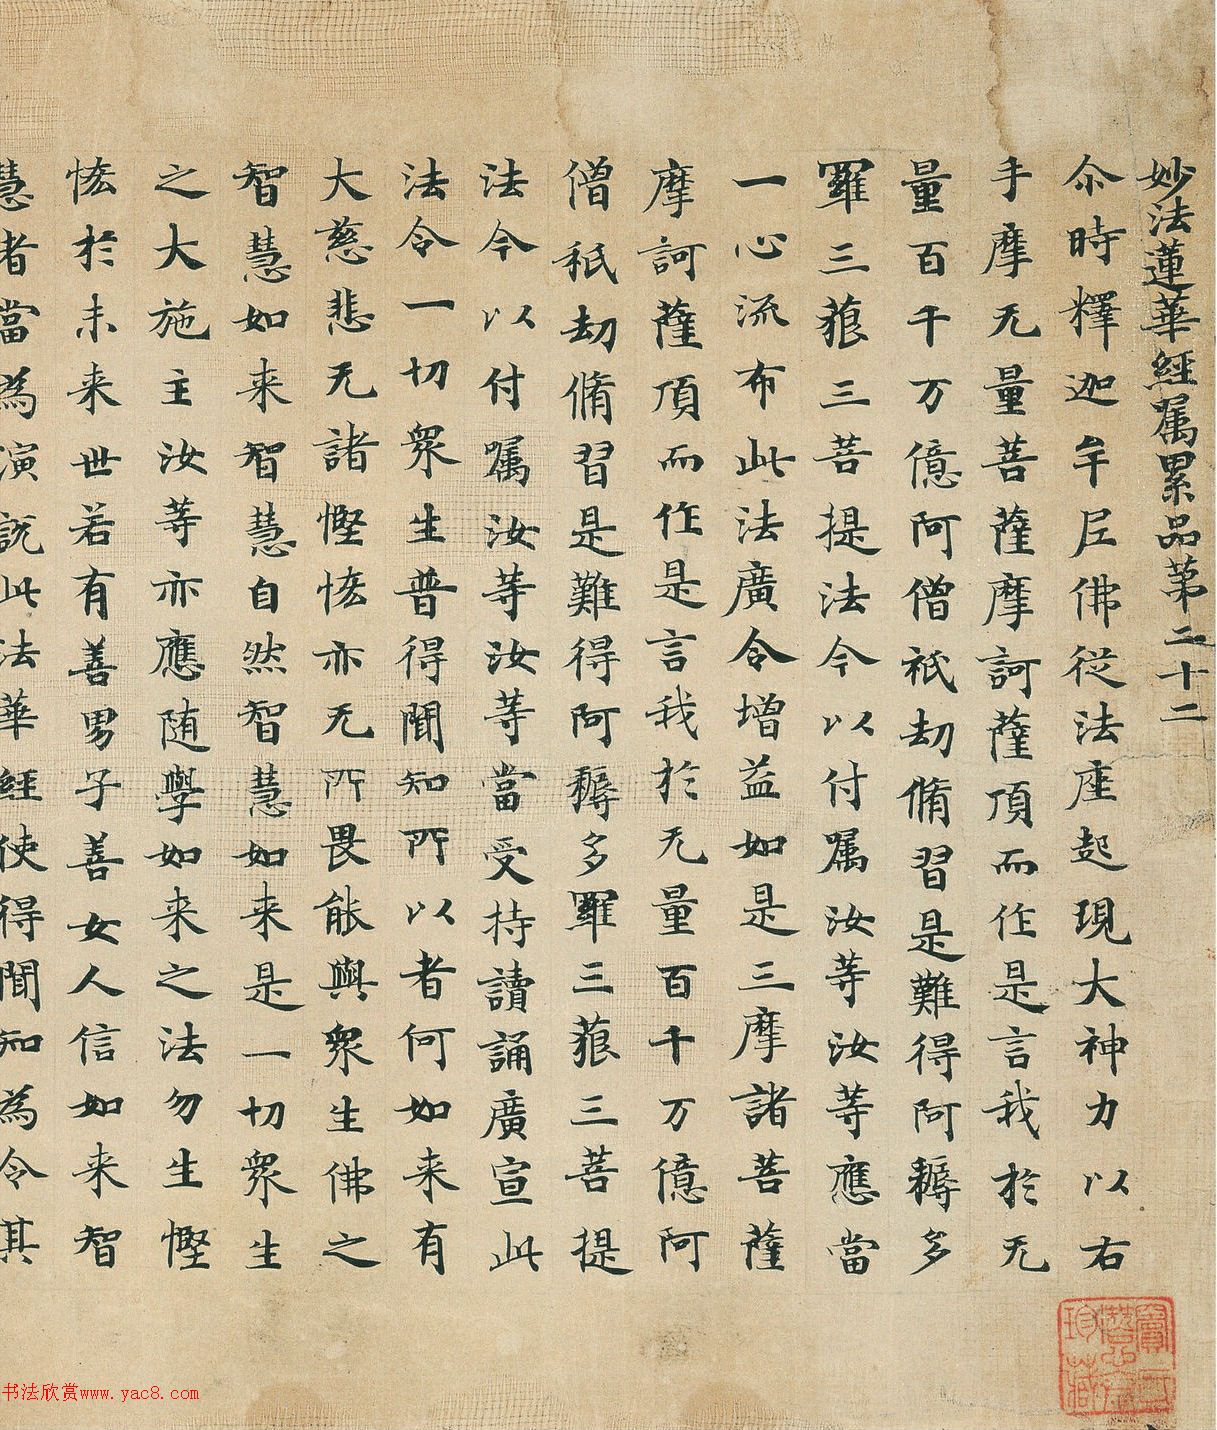 妙法蓮華經属累品第二十二
尒時釋迦牟尼佛從法座起現大神力以右
手摩无量菩薩摩訶薩頂而作是言我於无
量百千万億阿僧祇劫脩習是難得阿耨多
羅三藐三菩提法今以付嘱汝等汝等應當
一心流布此法廣令增益如是三摩諸菩薩
摩訶薩頂而作是言我於无量百千万億阿
僧祇劫脩習是難得阿耨多羅三藐三菩提
法今以付嘱汝等汝等當受持讀誦廣宣此
法令一切衆生普得聞知所以者何如来有
大慈悲无諸慳悋亦无所畏能與衆生佛之
智慧如来智慧自然智慧如来是一切衆生
之大施主汝等亦應随學如来之法勿生慳
悋於未来世若有善男子善女人信如来智
慧者當為演說此法華經使得聞知為令其
珍藏
书法欣赏www.yac8.com